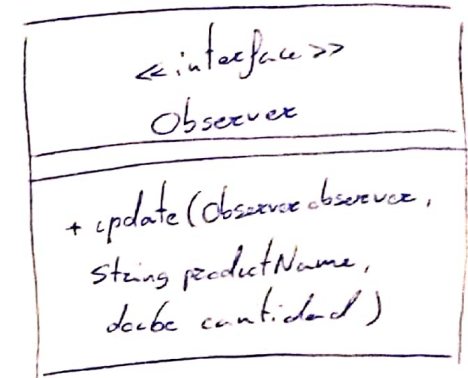 <<interface>>
Observer
+ update(Observer observer,
String productName,
double cantidad)